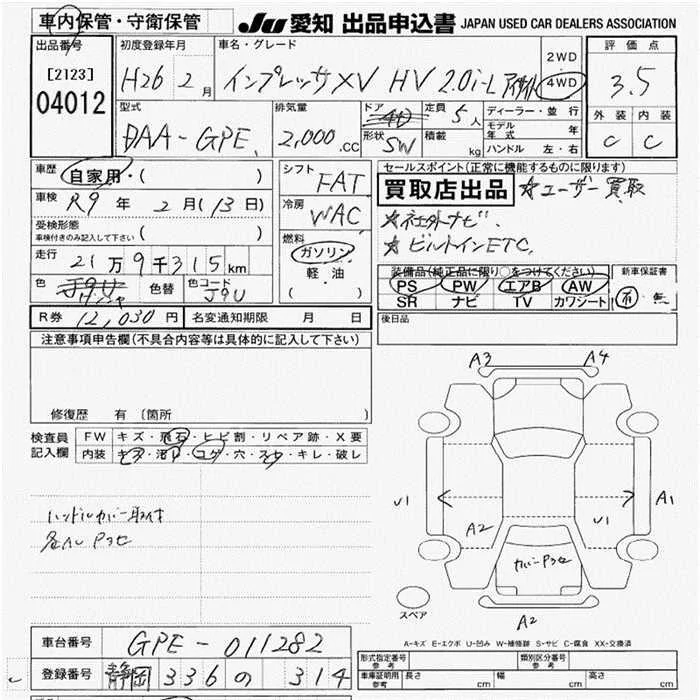 車内保管・守衛保管
JU 愛知 出品申込書 JAPAN USED CAR DEALERS ASSOCIATION
出品番号 初度登録年月 車名・グレード 2WD 評価点
[2123] H26 2月 インプレッサXV HV 2.0i-L アイサイト 4WD 3.5
04012
型式 排気量 ドア 定員 5人 ディーラー・並行 外装 内装
DAA-GPE 2,000.cc 4D 形状 SW 積載 kg モデル年式 年 C C
ハンドル 左・右
車歴 自家用・( ) シフト FAT セールスポイント(正常に機能するものに限ります)
車検 R9年 2月(13日) 冷房 WAC 買取店出品 ☆ユーザー買取
受検形態 車検付きのみ記入して下さい ( ) ★社外ナビ.
燃料 ガソリン 軽・油 ( ) ★ビルトインETC.
走行 21万9千315km
色 色替 色コード J9U
装備品(純正品に限り○をつけてください) 新車保証書
PS PW エアB AW
SR ナビ TV カワシート 無
R券 12,030円 名変通知期限 月 日 後日品
注意事項申告欄(不具合内容等は具体的に記入して下さい)
修復歴 有 [箇所 ]
検査員記入欄 FW キズ・飛石・ヒビ割・リペア跡・X要
内装 キズ・汚レ・コゲ・穴・スレ・キレ・破レ
A3 A4
U1 A2 U1 A1
ハンドルカバー取付
カバーPクセ
スペア
A2
A-キズ E-エクボ U-凹み W-補修跡 S-サビ C-腐食 XX-交換済
車台番号 GPE-011282
登録番号 静岡 336 の 314
形式指定番号 参考 類別区分番号 参考
車庫証明用 参考 長さ cm 幅 cm 高さ cm